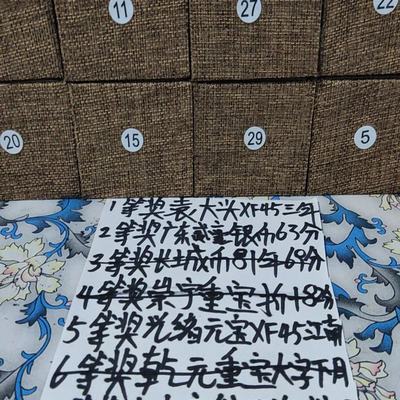 11
27
22
20
15
29
5
1等奖袁大头XF45三年
2等奖广东 银币63分
3等奖长城币81年69分
4等奖崇宁重宝折十82分
5等奖光绪元宝XF45江南
6等奖乾元重宝大字下月